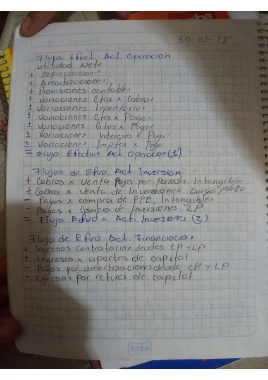 30-01-18
Flujo Efect. Act. Operacion
utilidad Neta
+ Depreciacion
+ Amortizacion
+ Provisiones contables
± Variaciones Ctas x Cobrar
± Variaciones Inventarios
± Variaciones Ctas x Pagar
± Variaciones Gtos x Pagar
± Variaciones Intereses x Pagar
± Variaciones Imptos x Pagar
= Flujo Efectivo Act Operacion (1)
Flujos de Efvo. Act. Inversion
+ Cobros x Venta
+ Cobros x Venta de Inversiones Largo plazo
- Pagos x compra de PPE, Intangibles
- Pagos x Compra de Inversiones LP
= Flujo Efvo x Act. Inversiones (2)
Flujo de Efvo Act. Financiacion
+ Ingresos Contratacion deudas CP y LP
+ Ingresos x aportes de capital
- Pagos por amortizaciones deuda CP y LP
- por retiros de capital